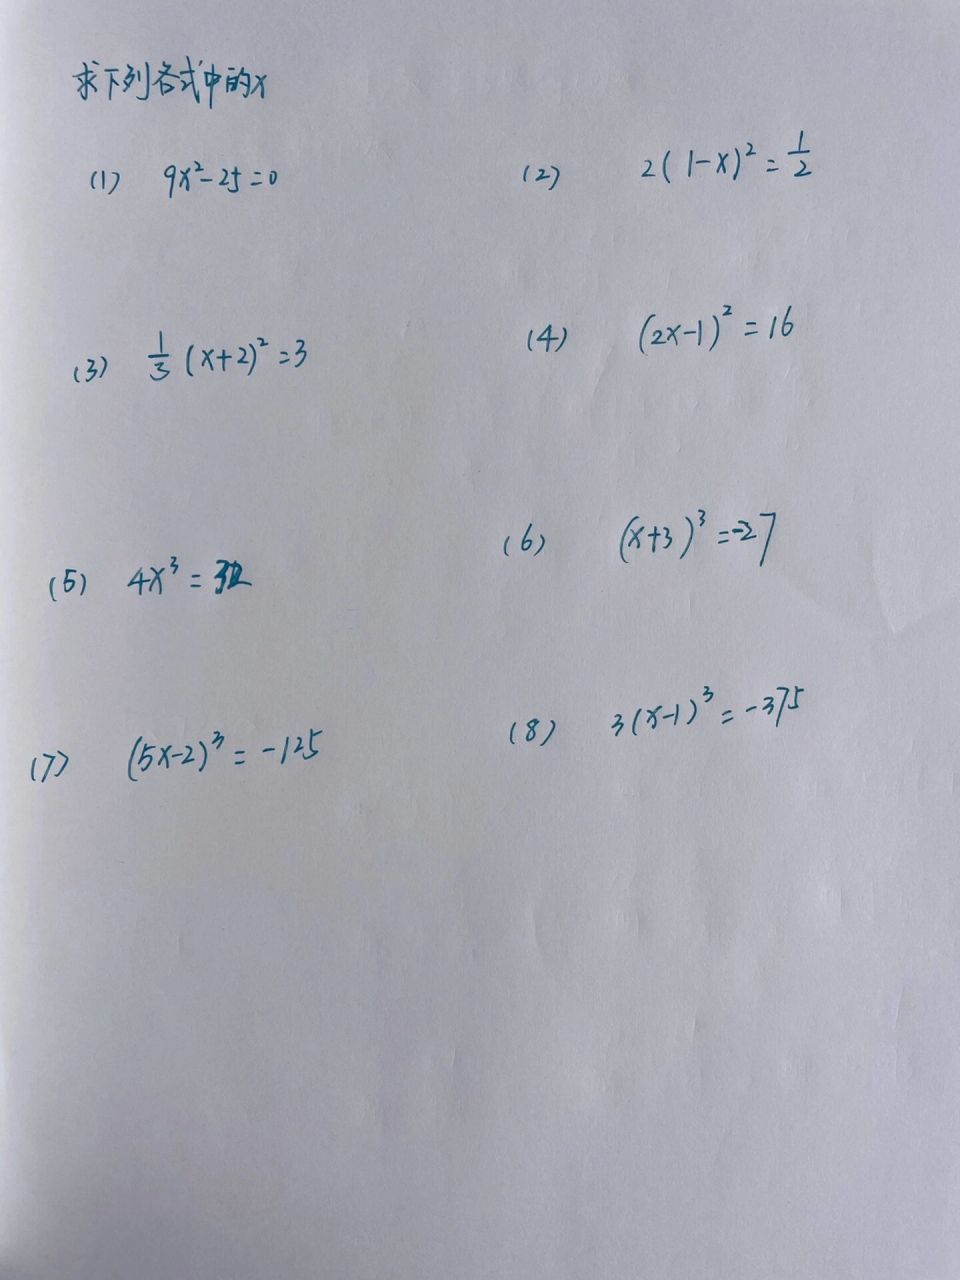 求下列各式中的x
(1) 9x²-25=0
(2) 2(1-x)²=1/2
(3) 1/3(x+2)²=3
(4) (2x-1)²=16
(5) 4x³=32
(6) (x+3)³=-27
(7) (5x-2)³=-125
(8) 3(x-1)³=-375